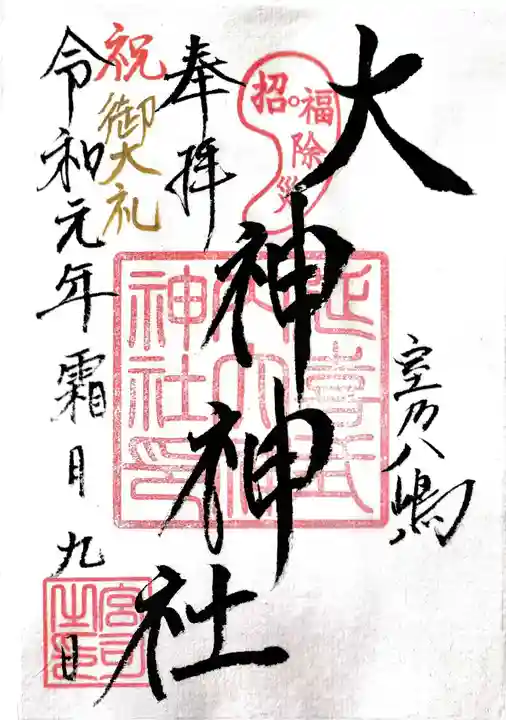 室乃八嶋
大神神社
招福除災
延喜式内大神神社印
奉拝
祝
御大礼
令和元年霜月九日
宮司之印